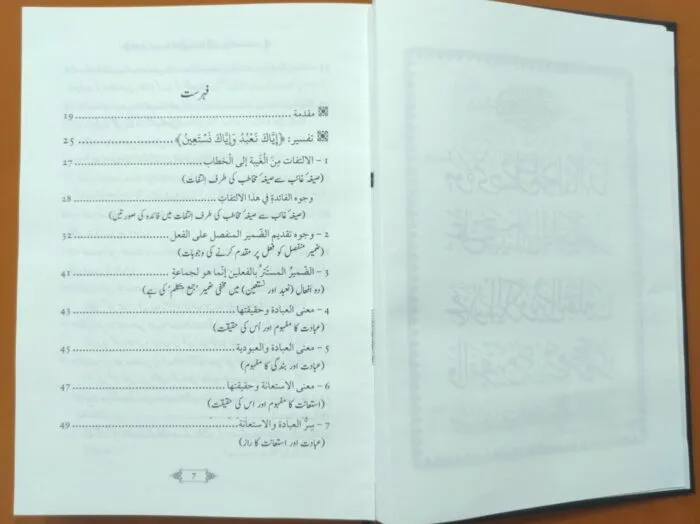 فہرست
مقدمة .......... 19
تفسير: ﴿إِيَّاكَ نَعْبُدُ وَإِيَّاكَ نَسْتَعِينُ﴾ .......... 25
1 - الالتفات مِنَ الْغَيبة إلى الْخطاب .......... 27
(صیغۂ غائب سے صیغۂ مخاطب کی طرف اِلتفات)
وجوه الفائدة في هذا الالتفات .......... 28
(صیغۂ غائب سے صیغۂ مخاطب کی طرف اِلتفات میں فائدہ کی صورتیں)
2 - وجوه تقديم الضّمير المنفصل على الفعل .......... 32
(ضمیر منفصل کو فعل پر مقدم کرنے کی وجوہات)
3 - الضّميرُ المستَترُ بالفعلين إنّما هو لجماعةٍ .......... 41
(دو افعال (نعبد اور نستعین) میں مخفی ضمیر 'جمع متکلم' کی ہے)
4 - معنى العبادة وحقيقتها .......... 43
(عبادت کا مفہوم اور اُس کی حقیقت)
5 - معنى العبادة والعبودية .......... 45
(عبادت اور بندگی کا مفہوم)
6 - معنى الاستعانة وحقيقتها .......... 47
(استعانت کا مفہوم اور اس کی حقیقت)
7 - سِرُّ العبادة والاستعانة .......... 49
(عبادت اور استعانت کا راز)
7